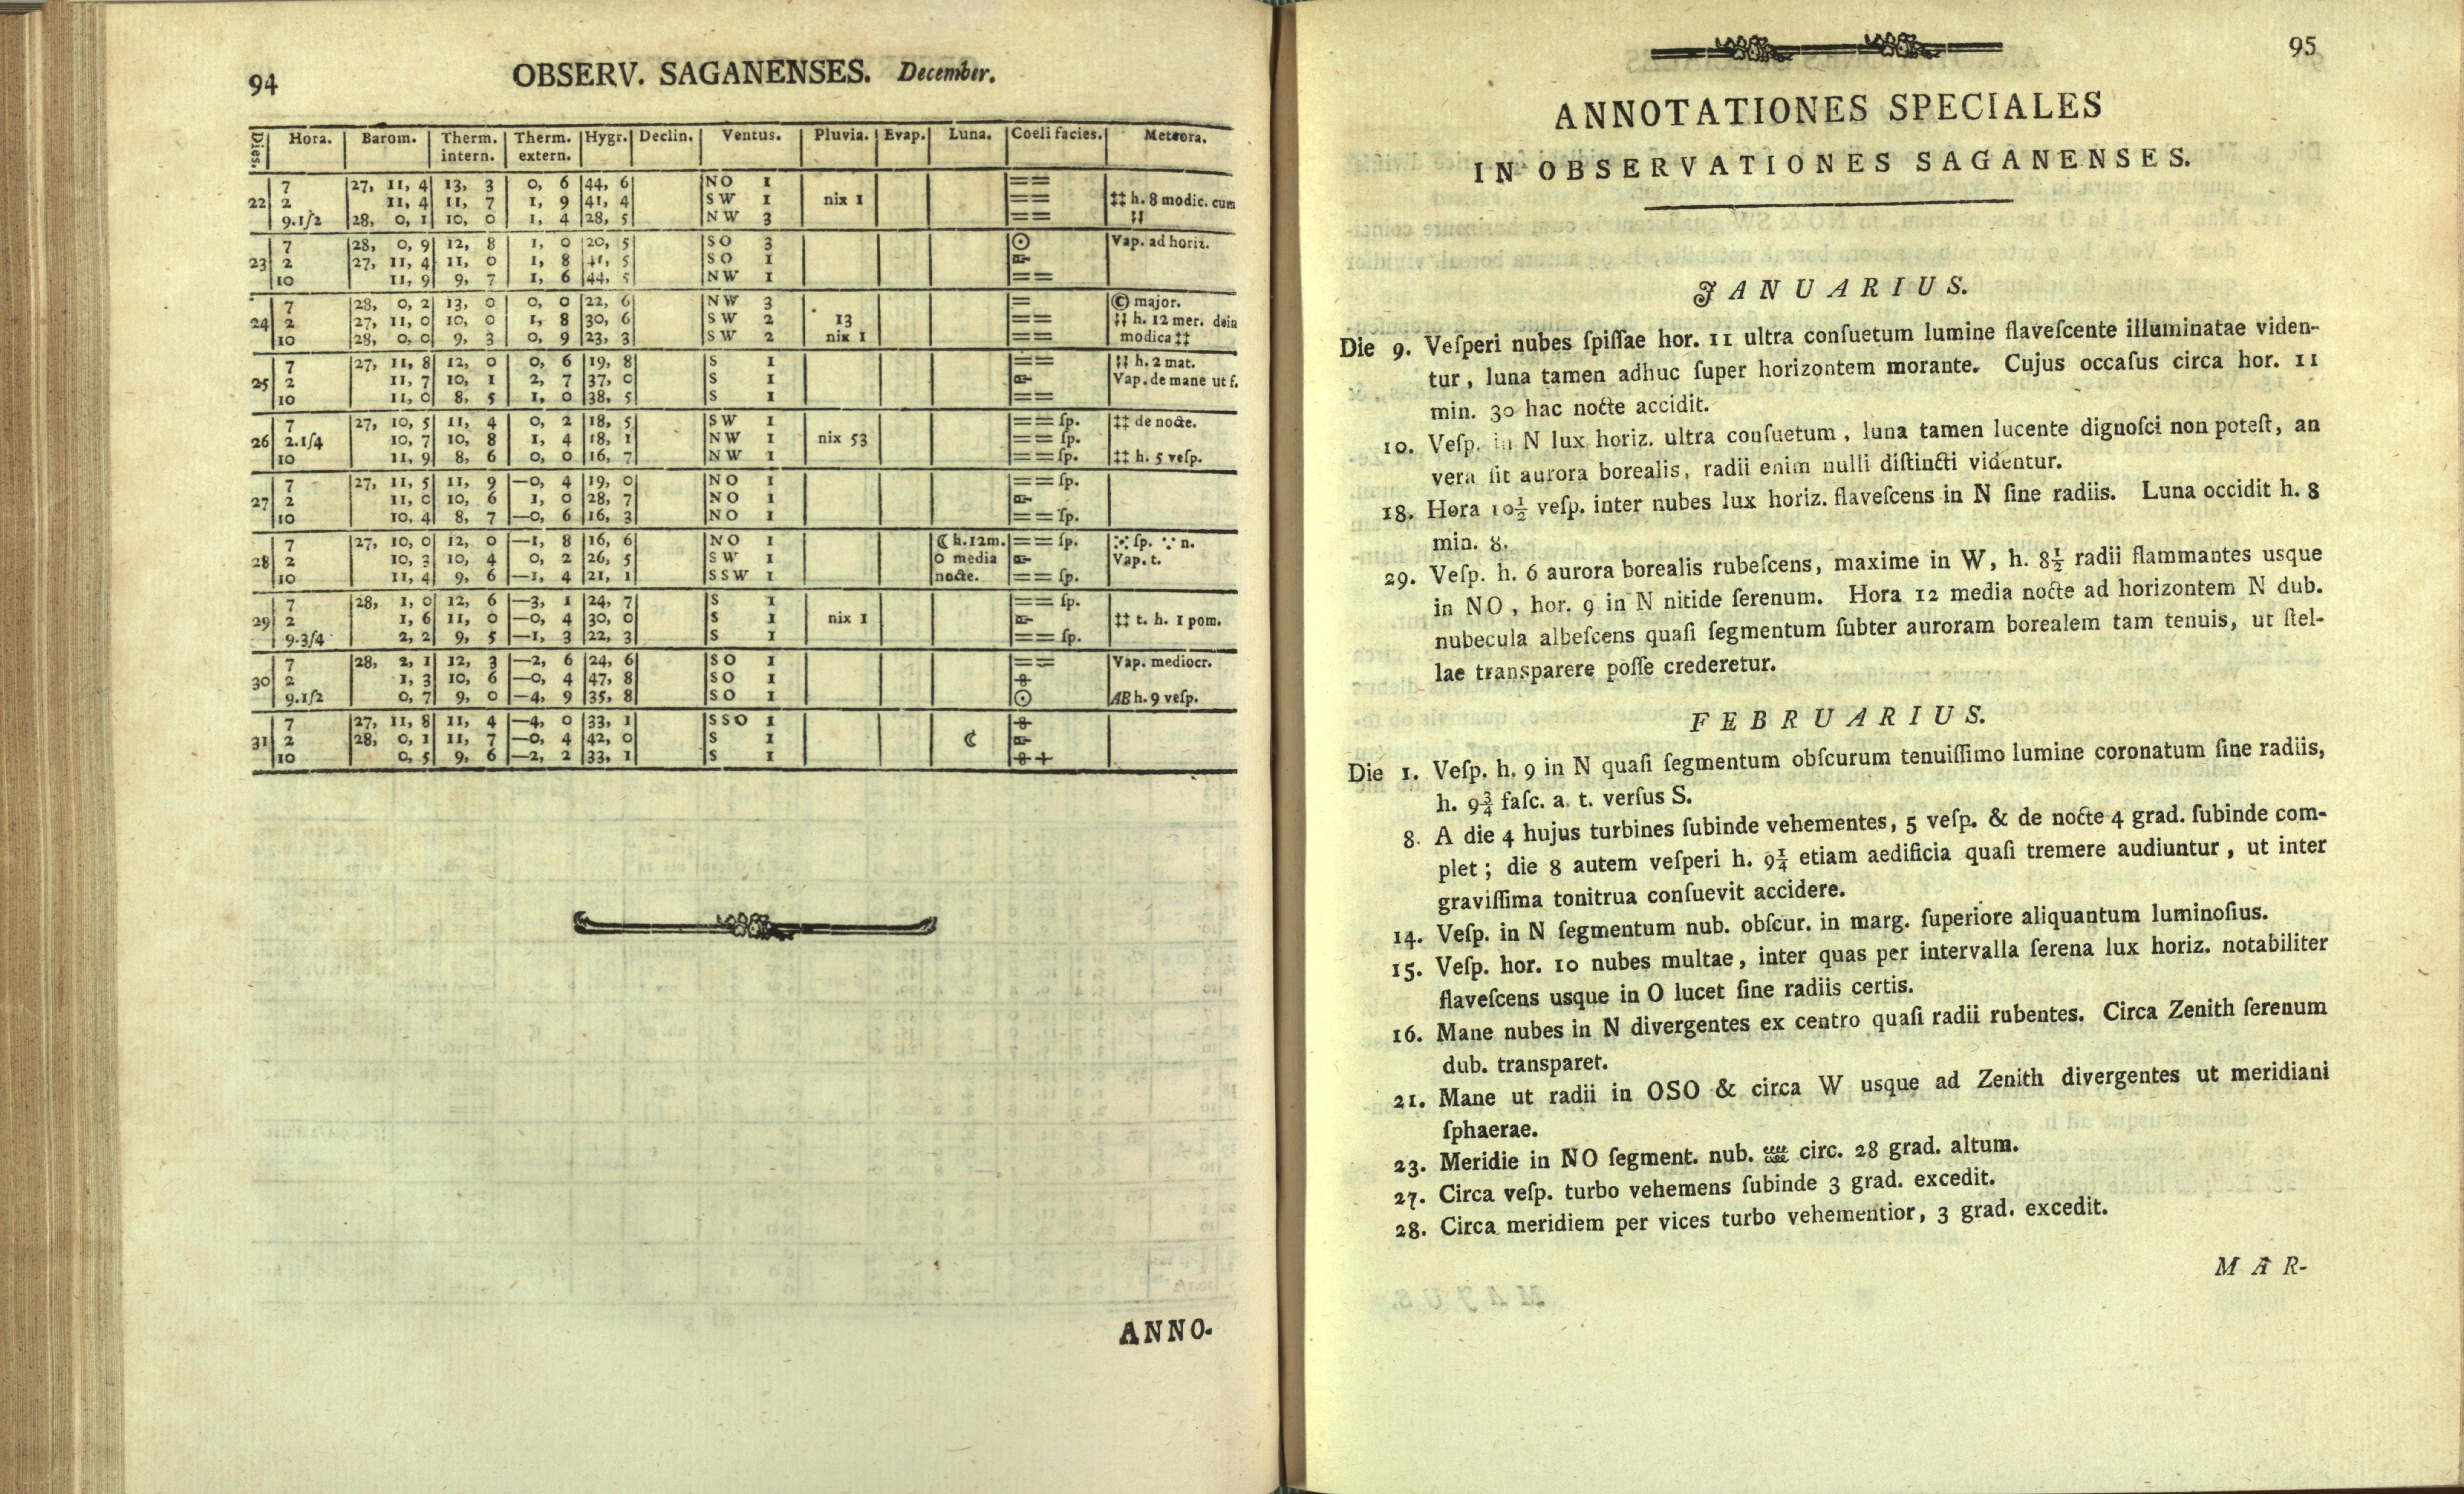 94 OBSERV. SAGANENSES. December.
Dies. Hora. Barom. Therm. intern. Therm. extern. Hygr. Declin. Ventus. Pluvia. Evap. Luna. Coeli facies. Meteora.
7 27, 11, 4 13, 3 0, 6 44, 6 NO 1 ==
22 2 11, 4 11, 7 1, 9 41, 4 SW 1 nix 1 == ‡‡ h. 8 modic. cum
9.1/2 28, 0, 1 10, 0 1, 4 28, 5 NW 3 ==
7 28, 0, 9 12, 8 1, 0 20, 5 SO 3 ☉ Vap. ad horiz.
23 2 27, 11, 4 11, 0 1, 8 41, 5 SO 1
10 11, 9 9, 7 1, 6 44, 5 NW 1 ==
7 28, 0, 2 13, 0 0, 0 22, 6 NW 3 = major.
24 2 27, 11, 0 10, 0 1, 8 30, 6 SW 2 13 == h. 12 mer. dein
10 28, 0, 0 9, 3 0, 9 23, 3 SW 2 nix 1 == modica ‡‡
7 27, 11, 8 12, 0 0, 6 19, 8 S 1 == h. 2 mat.
25 2 11, 7 10, 1 2, 7 37, 0 S 1 Vap. de mane ut ſ.
10 11, 0 8, 5 1, 0 38, 5 S 1 ==
7 27, 10, 5 11, 4 0, 2 18, 5 SW 1 == ſp. ‡‡ de nocte.
26 2.1/4 10, 7 10, 8 1, 4 18, 1 NW 1 nix 53 == ſp.
10 11, 9 8, 6 0, 0 16, 7 NW 1 == ſp. ‡‡ h. 5 veſp.
7 27, 11, 5 11, 9 —0, 4 19, 0 NO 1 == ſp.
27 2 11, 0 10, 6 1, 0 28, 7 NO 1
10 10, 4 8, 7 —0, 6 16, 3 NO 1 == ſp.
7 27, 10, 0 12, 0 —1, 8 16, 6 NO 1 ☾ h. 12m. == ſp. ſp. n.
28 2 10, 3 10, 4 0, 2 26, 5 SW 1 O media Vap. t.
10 11, 4 9, 6 —1, 4 21, 1 SSW 1 nocte. == ſp.
7 28, 1, 0 12, 6 —3, 1 24, 7 S 1 == ſp.
29 2 1, 6 11, 0 —0, 4 30, 0 S 1 nix 1 ‡‡ t. h. 1 pom.
9.3/4 2, 2 9, 5 —1, 3 22, 3 S 1 == ſp.
7 28, 2, 1 12, 3 —2, 6 24, 6 SO 1 == Vap. mediocr.
30 2 1, 3 10, 6 —0, 4 47, 8 SO 1
9.1/2 0, 7 9, 0 —4, 9 35, 8 SO 1 ☉ AB h. 9 veſp.
7 27, 11, 8 11, 4 —4, 0 33, 1 SSO 1
31 2 28, 0, 1 11, 7 —0, 4 42, 0 S 1 ☾
10 0, 5 9, 6 —2, 2 33, 1 S 1 +
ANNO-
95
ANNOTATIONES SPECIALES
IN OBSERVATIONES SAGANENSES.
JANUARIUS.
Die 9. Veſperi nubes ſpiſſae hor. 11 ultra conſuetum lumine flaveſcente illuminatae viden-
tur, luna tamen adhuc ſuper horizontem morante. Cujus occaſus circa hor. 11
min. 30 hac nocte accidit.
10. Veſp. in N lux horiz. ultra conſuetum, luna tamen lucente dignoſci non poteſt, an
vera ſit aurora borealis, radii enim nulli diſtincti videntur.
18. Hora 10½ veſp. inter nubes lux horiz. flaveſcens in N ſine radiis. Luna occidit h. 8
min. 8.
29. Veſp. h. 6 aurora borealis rubeſcens, maxime in W, h. 8½ radii flammantes usque
in NO, hor. 9 in N nitide ſerenum. Hora 12 media nocte ad horizontem N dub.
nubecula albeſcens quaſi ſegmentum ſubter auroram borealem tam tenuis, ut ſtel-
lae transparere poſſe crederetur.
FEBRUARIUS.
Die 1. Veſp. h. 9 in N quaſi ſegmentum obſcurum tenuiſſimo lumine coronatum ſine radiis,
h. 9¾ faſc. a. t. verſus S.
8. A die 4 hujus turbines ſubinde vehementes, 5 veſp. & de nocte 4 grad. ſubinde com-
plet; die 8 autem veſperi h. 9¼ etiam aedificia quaſi tremere audiuntur, ut inter
graviſſima tonitrua conſuevit accidere.
14. Veſp. in N ſegmentum nub. obſcur. in marg. ſuperiore aliquantum luminoſius.
15. Veſp. hor. 10 nubes multae, inter quas per intervalla ſerena lux horiz. notabiliter
flaveſcens usque in O lucet ſine radiis certis.
16. Mane nubes in N divergentes ex centro quaſi radii rubentes. Circa Zenith ſerenum
dub. transparet.
21. Mane ut radii in OSO & circa W usque ad Zenith divergentes ut meridiani
ſphaerae.
23. Meridie in NO ſegment. nub. circ. 28 grad. altum.
27. Circa veſp. turbo vehemens ſubinde 3 grad. excedit.
28. Circa meridiem per vices turbo vehementior, 3 grad. excedit.
MAR-